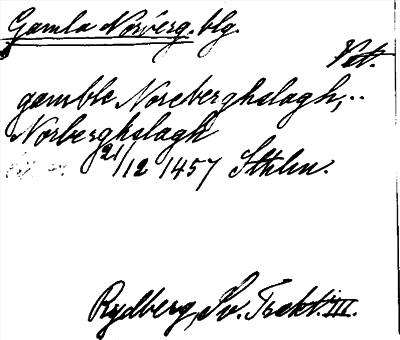 Gamla Norberg. blg.
Vst.
gamble Noreberghslagh,..
Norberghslagh
21/12 1457 Sthlm.
Rydberg, Sv. Trakt. III.